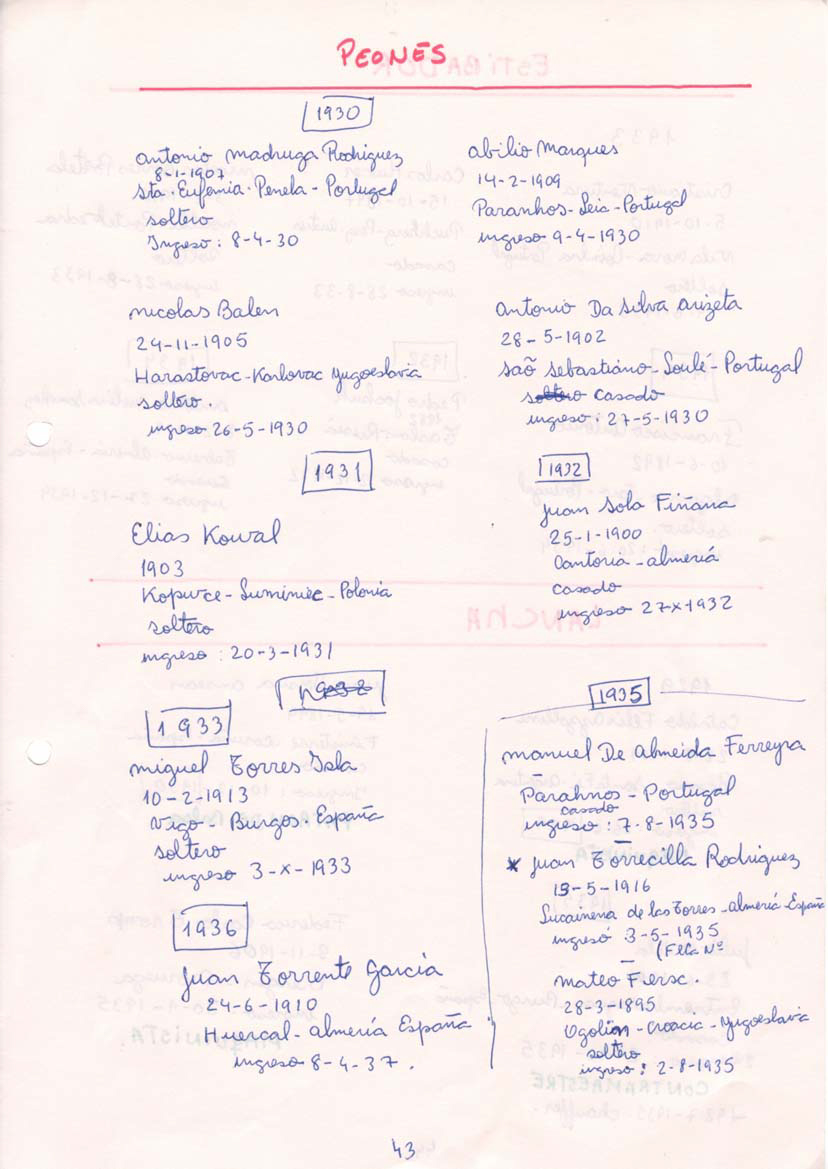 PEONES
1930
antonio madruga Rodriguez
8-1-1907
Sta. Eufemia. Penela - Portugal
soltero
Ingreso: 8-4-30
abilio Marques
14-2-1909
Paranhos-Seia-Portugal
ingreso 9-4-1930
nicolas Balen
24-11-1905
Harastovac-Karlovac Yugoeslavia
soltero.
ingreso 26-5-1930
Antonio Da Silva arizeta
28-5-1902
saõ Sebastiáno-Soulé-Portugal
soltero casado
ingreso: 27-5-1930
1931
Elias Kowal
1903
Kopuvce-Suminiec-Polonia
soltero
ingreso: 20-3-1931
1932
Juan Sola Fiñana
25-1-1900
Cantoria-almeriá
casado
ingreso 27-x-1932
1932
1933
miguel Torres Isla
10-2-1913
Vigo-Burgos. España
soltero
ingreso 3-x-1933
1935
manuel De Almeida Ferreyra
Parahnos-Portugal
casado
ingreso: 7-8-1935
* Juan Torrecilla Rodriguez
13-5-1916
Lucainena de las Torres-almeriá-España
ingresó 3-5-1935
(Fela Nº
mateo Fiersc.
28-3-1895
Ogolin-Croacia-Yugoeslavia
soltero
ingreso: 2-8-1935
1936
Juan Torrente Garcia
24-6-1910
Huercal-almería España
ingreso 8-4-37.
43